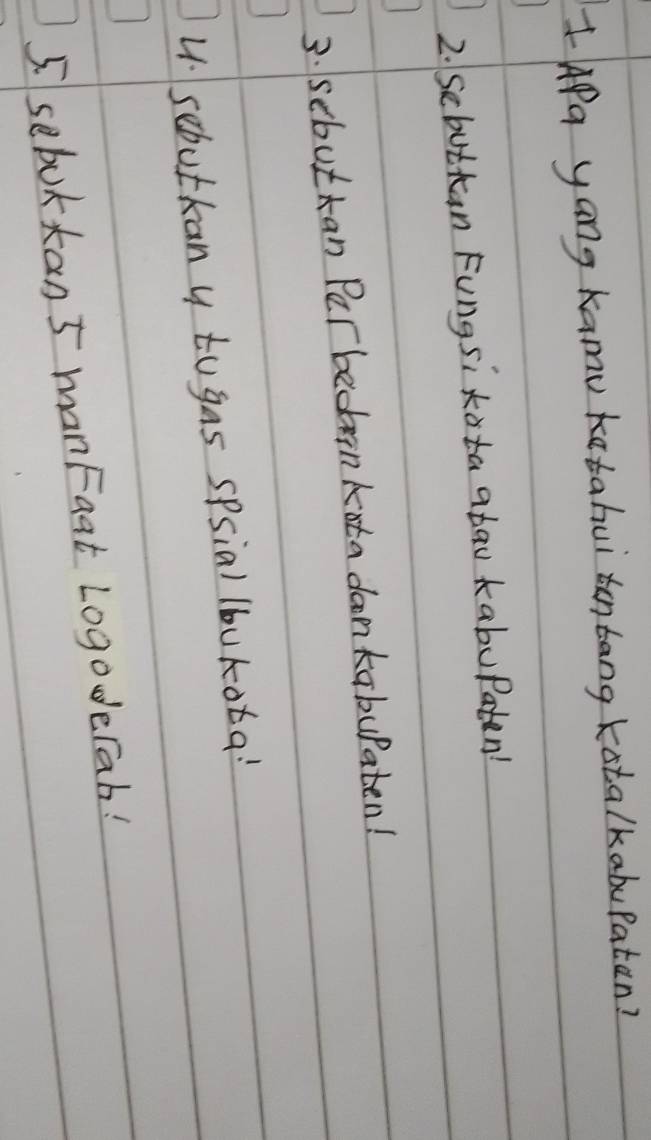 1. APa yang kamu ketahui tentang kota/kabuPaten?
2. Sebutkan Fungsi kota atau kabuPaten!
3. sebutkan Perbedaan kota dan kabuPaten!
4. sebutkan 4 tugas spsial Ibukota!
5. sebutkan 5 manFaat Logo derah!